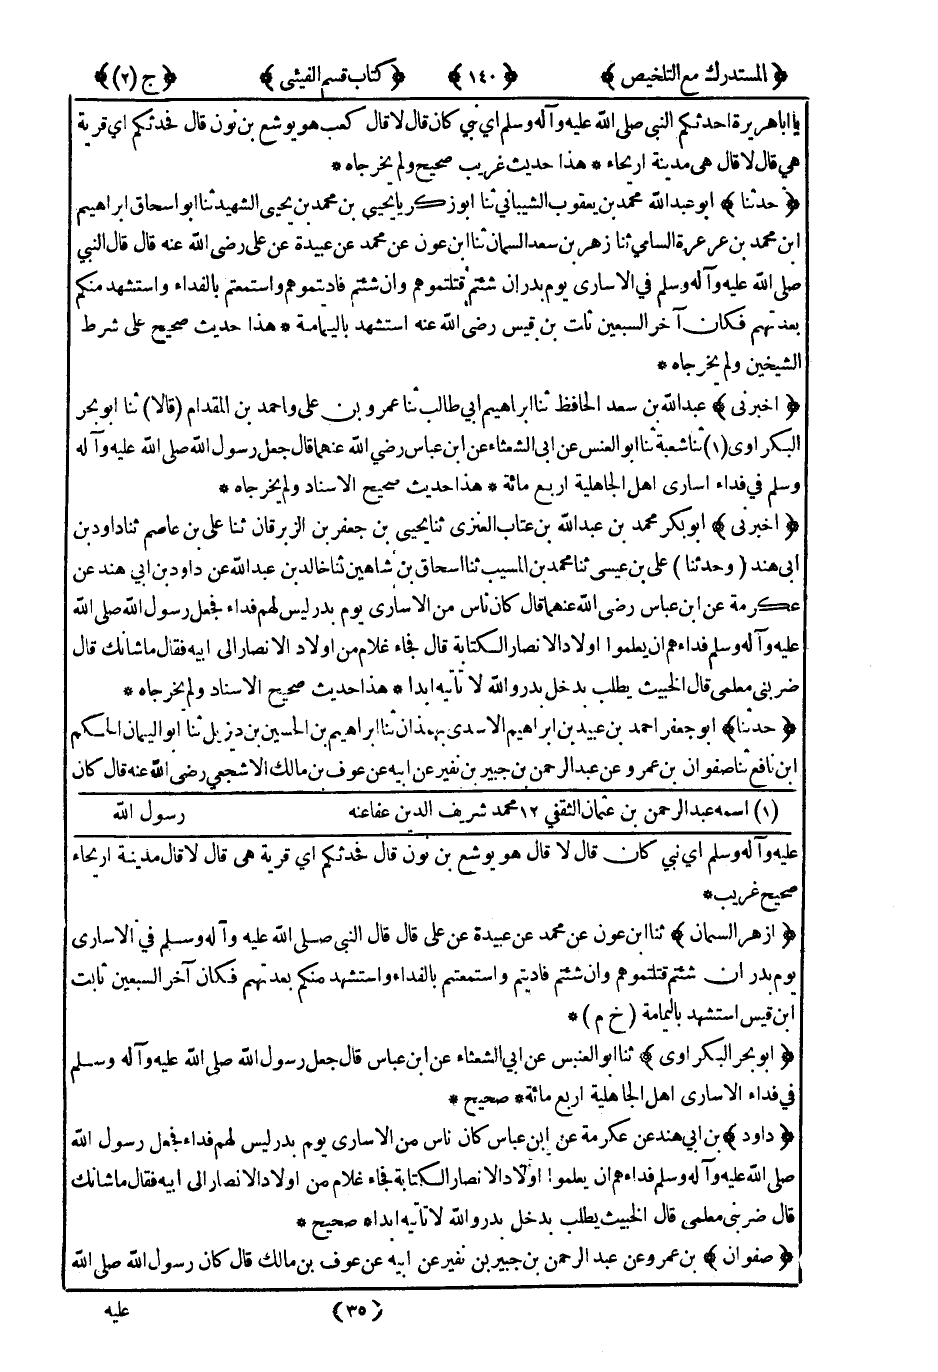 ﴿ المستدرك مع التلخيص ﴾ ﴿ ١٤٠ ﴾ ﴿ كتاب قسم الفيئى ﴾ ﴿ ج (٢) ﴾
يا اباهريرة احدثكم النبى صلى الله عليه وآله وسلم اي نبي كان قال لا قال كعب هو يوشع بن نون قال فحدثكم اي قرية
هي قال لا قال هى مدينة اريحاء * هذا حديث غريب صحيح ولم يخرجاه *
﴿ حدثنا ﴾ ابو عبد الله محمد بن يعقوب الشيباني ثنا ابو زكريا يحيى بن محمد بن يحيى الشهيد ثنا ابو اسحاق ابراهيم
ابن محمد بن عرعرة السامي ثنا زهر بن سعد السمان ثنا ابن عون عن محمد عن عبيدة عن على رضى الله عنه قال قال النبي
صلى الله عليه وآله وسلم في الاسارى يوم بدر ان شئتم قتلتموهم وان شئتم فاديتموهم واستمتعتم بالفداء واستشهد منكم
بعدتهم فكان آخر السبعين ثابت بن قيس رضى الله عنه استشهد باليمامة * هذا حديث صحيح على شرط
الشيخين ولم يخرجاه *
﴿ اخبرنى ﴾ عبدالله بن سعد الحافظ ثنا ابراهيم ابي طالب ثنا عمرو بن على واحمد بن المقدام (قالا) ثنا ابو بحر
البكراوى (١) ثنا شعبة ثنا ابو العنبس عن ابى الشعثاء عن ابن عباس رضي الله عنهما قال جعل رسول الله صلى الله عليه وآله
وسلم في فداء اسارى اهل الجاهلية اربع مائة * هذا حديث صحيح الاسناد ولم يخرجاه *
﴿ اخبرنى ﴾ ابو بكر محمد بن عبد الله بن عتاب العنزى ثنا يحيى بن جعفر بن الزبرقان ثنا على بن عاصم ثنا داود بن
ابى هند ( وحدثنا ) على بن عيسى ثنا محمد بن المسيب ثنا اسحاق بن شاهين ثنا خالد بن عبد الله عن داود بن ابي هند عن
عكرمة عن ابن عباس رضى الله عنهما قال كان ناس من الاسارى يوم بدر ليس لهم فداء فجعل رسول الله صلى الله
عليه وآله وسلم فداءهم ان يعلموا اولاد الانصار الكتابة قال فجاء غلام من اولاد الانصار الى ابيه فقال ما شانك قال
ضربنى معلمى قال الخبيث يطلب بدخل بدر والله لا تأتيه ابدا * هذا حديث صحيح الاسناد ولم يخرجاه *
﴿ حدثنا ﴾ ابو جعفر احمد بن عبيد بن ابراهيم الاسدى بهمذان ثنا ابراهيم بن الحسين بن ديزيل ثنا ابو اليمان الحكم
ابن نافع ثنا صفوان بن عمرو عن عبد الرحمن بن جبير بن نفير عن ابيه عن عوف بن مالك الاشجعي رضى الله عنه قال كان
(١) اسمه عبد الرحمن بن عثمان الثقفي ١٢ محمد شريف الدين عفا عنه رسول الله
عليه وآله وسلم اي نبي كان قال لا قال هو يوشع بن نون قال فحدثكم اي قرية هى قال لا قال مدينة اريحاء
صحيح غريب *
﴿ ازهر السمان ﴾ ثنا ابن عون عن محمد عن عبيدة عن على قال قال النبي صلى الله عليه وآله وسلم في الاسارى
يوم بدر ان شئتم قتلتموهم وان شئتم فاديتم واستمتعتم بالفداء واستشهد منكم بعدتهم فكان آخر السبعين ثابت
ابن قيس استشهد باليمامة ( خ م ) *
﴿ ابو بحر البكراوى ﴾ ثنا ابو العنبس عن ابي الشعثاء عن ابن عباس قال جعل رسول الله صلى الله عليه وآله وسلم
في فداء الاسارى اهل الجاهلية اربع مائة * صحيح *
﴿ داود ﴾ بن ابي هند عن عكرمة عن ابن عباس كان ناس من الاسارى يوم بدر ليس لهم فداء فجعل رسول الله
صلى الله عليه وآله وسلم فداءهم ان يعلموا اولاد الانصار الكتابة فجاء غلام من اولاد الانصار الى ابيه فقال ما شانك
قال ضربنى معلمى قال الخبيث يطلب بدخل بدر والله لا تأتيه ابدا * صحيح *
﴿ صفوان ﴾ بن عمرو عن عبد الرحمن بن جبير بن نفير عن ابيه عن عوف بن مالك قال كان رسول الله صلى الله
(٣٥) عليه